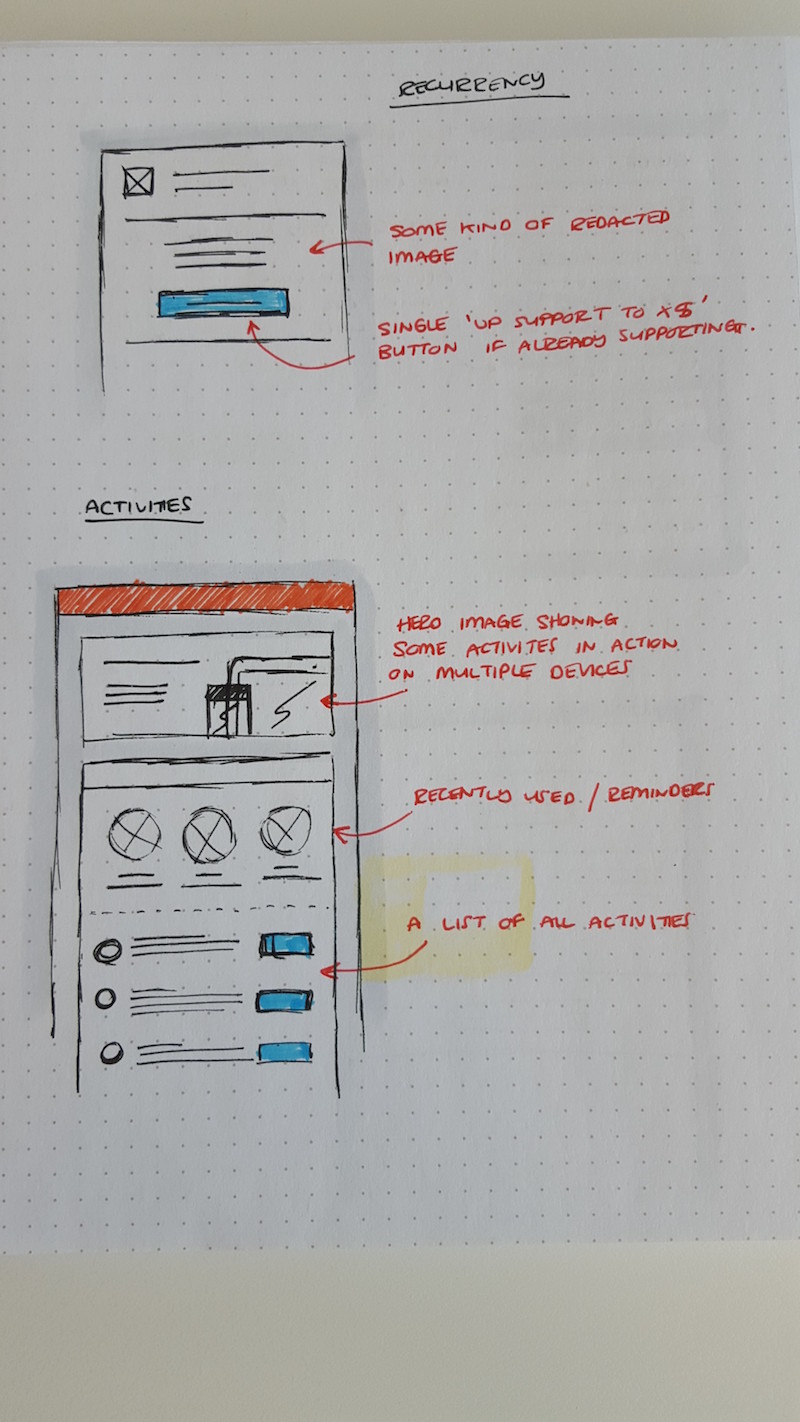 RECURRENCY
SOME KIND OF REDACTED
IMAGE
SINGLE 'UP SUPPORT TO X$'
BUTTON IF ALREADY SUPPORTING.
ACTIVITIES
HERO IMAGE SHOWING
SOME ACTIVITES IN ACTION
ON MULTIPLE DEVICES
RECENTLY USED / REMINDERS
A LIST OF ALL ACTIVITIES